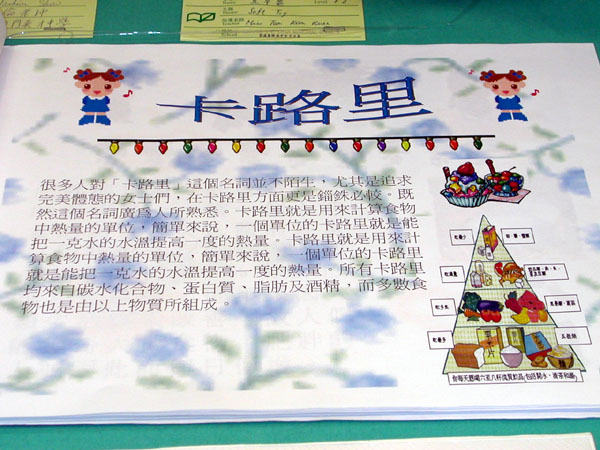 Soft Toy
卡路里
很多人對「卡路里」這個名詞並不陌生，尤其是追求
完美體態的女士們，在卡路里方面更是錙銖必較。既
然這個名詞廣為人所熟悉。卡路里就是用來計算食物
中熱量的單位，簡單來說，一個單位的卡路里就是能
把一克水的水溫提高一度的熱量。卡路里就是用來計
算食物中熱量的單位，簡單來說，一個單位的卡路里
就是能把一克水的水溫提高一度的熱量。所有卡路里
均來自碳水化合物、蛋白質、脂肪及酒精，而多數食
物也是由以上物質所組成。
吃最少
吃適量
吃多些
瓜果類、蔬菜
吃最多
五穀類